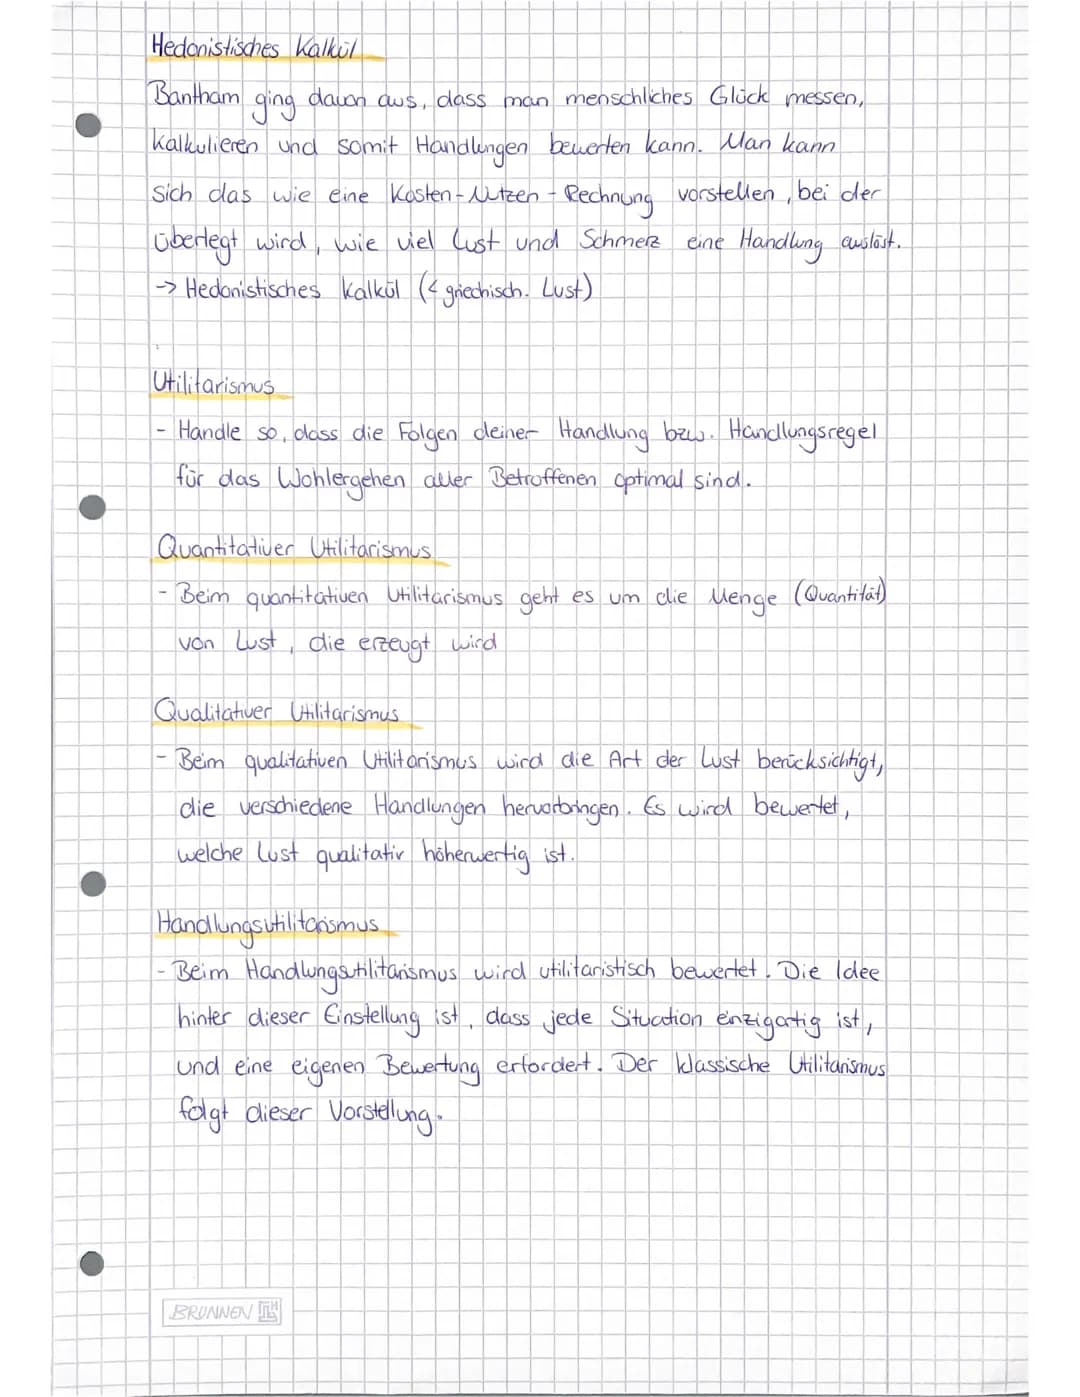 Hedonistisches Kalkül
Bantham ging davon aus, dass man menschliches Glück messen,
kalkulieren und somit Handlungen bewerten kann. Man kann
sich das wie eine Kosten-Nutzen-Rechnung vorstellen, bei der
überlegt wird, wie viel Lust und Schmerz eine Handlung auslöst.
-> Hedonistisches Kalkül (< griechisch. Lust)
Utilitarismus
- Handle so, dass die Folgen deiner Handlung bzw. Handlungsregel
für das Wohlergehen aller Betroffenen optimal sind.
Quantitativer Utilitarismus
- Beim quantitativen Utilitarismus geht es um die Menge (Quantität)
von Lust, die erzeugt wird
Qualitativer Utilitarismus
- Beim qualitativen Utilitarismus wird die Art der Lust berücksichtigt,
die verschiedene Handlungen hervorbringen. Es wird bewertet,
welche Lust qualitativ höherwertig ist.
Handlungsutilitarismus
- Beim Handlungsutilitarismus wird utilitaristisch bewertet. Die Idee
hinter dieser Einstellung ist, dass jede Situation enzigartig ist,
und eine eigenen Bewertung erfordert. Der klassische Utilitarismus
folgt dieser Vorstellung.
BRUNNEN